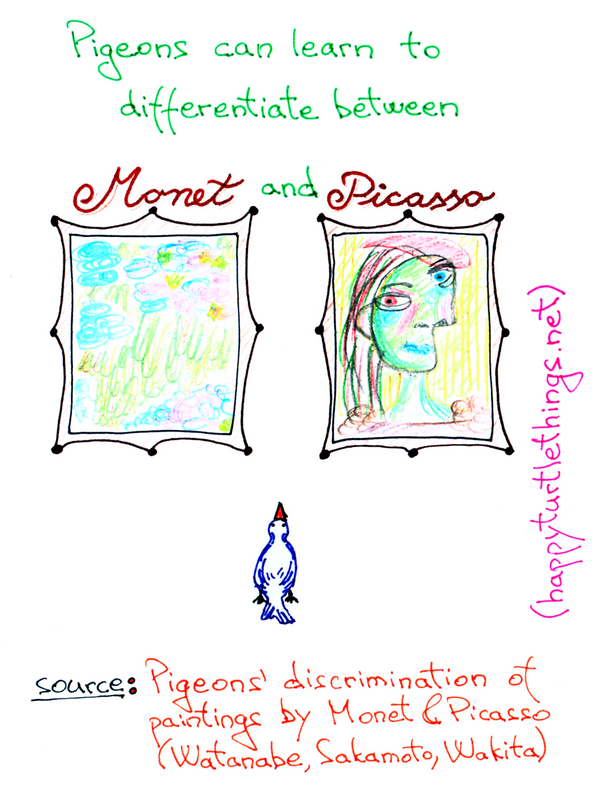 Pigeons can learn to
differentiate between
Monet and Picasso
(happyturtlethings.net)
source: Pigeons' discrimination of
paintings by Monet & Picasso
(Watanabe, Sakamoto, Wakita)